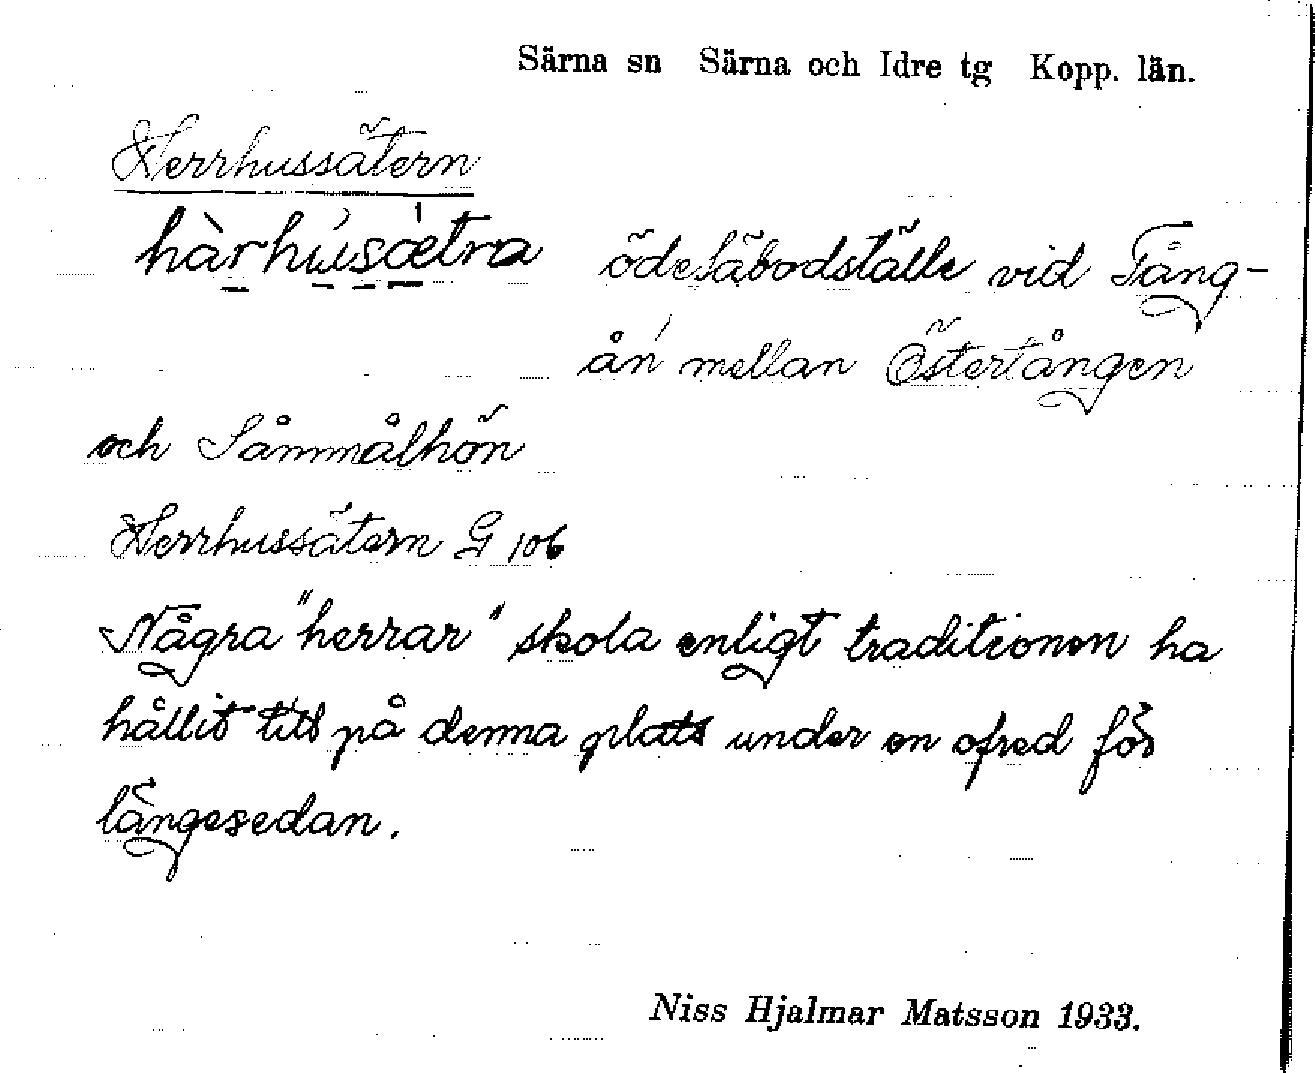 Särna sn Särna och Idre tg Kopp. län.
Herrhussätern
hàrhúsætra ödesäbodställe vid Tång-
ån mellan Östertången
och Såmmålhön
Herrhussätern G 106
Några "herrar" skola enligt traditionen ha
hållit till på denna plats under en ofred för
längesedan.
Niss Hjalmar Matsson 1933.